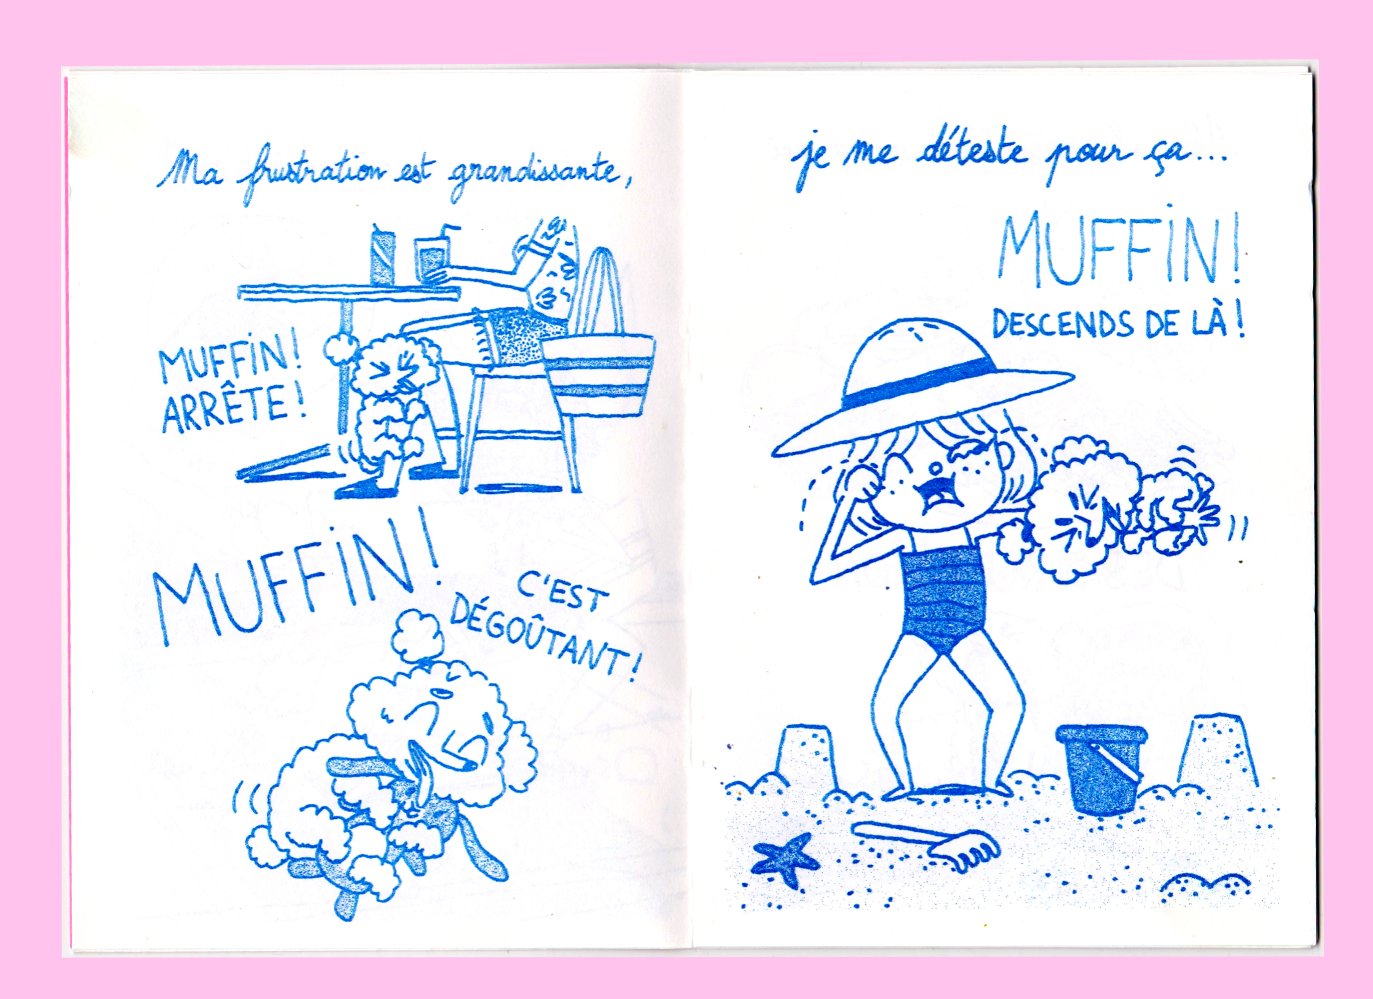 Ma frustration est grandissante,
MUFFiN!
ARRÊTE!
MUFFiN!
C'EST
DÉGOÛTANT!
je me déteste pour ça...
MUFFiN!
DESCENDS DE LÀ!